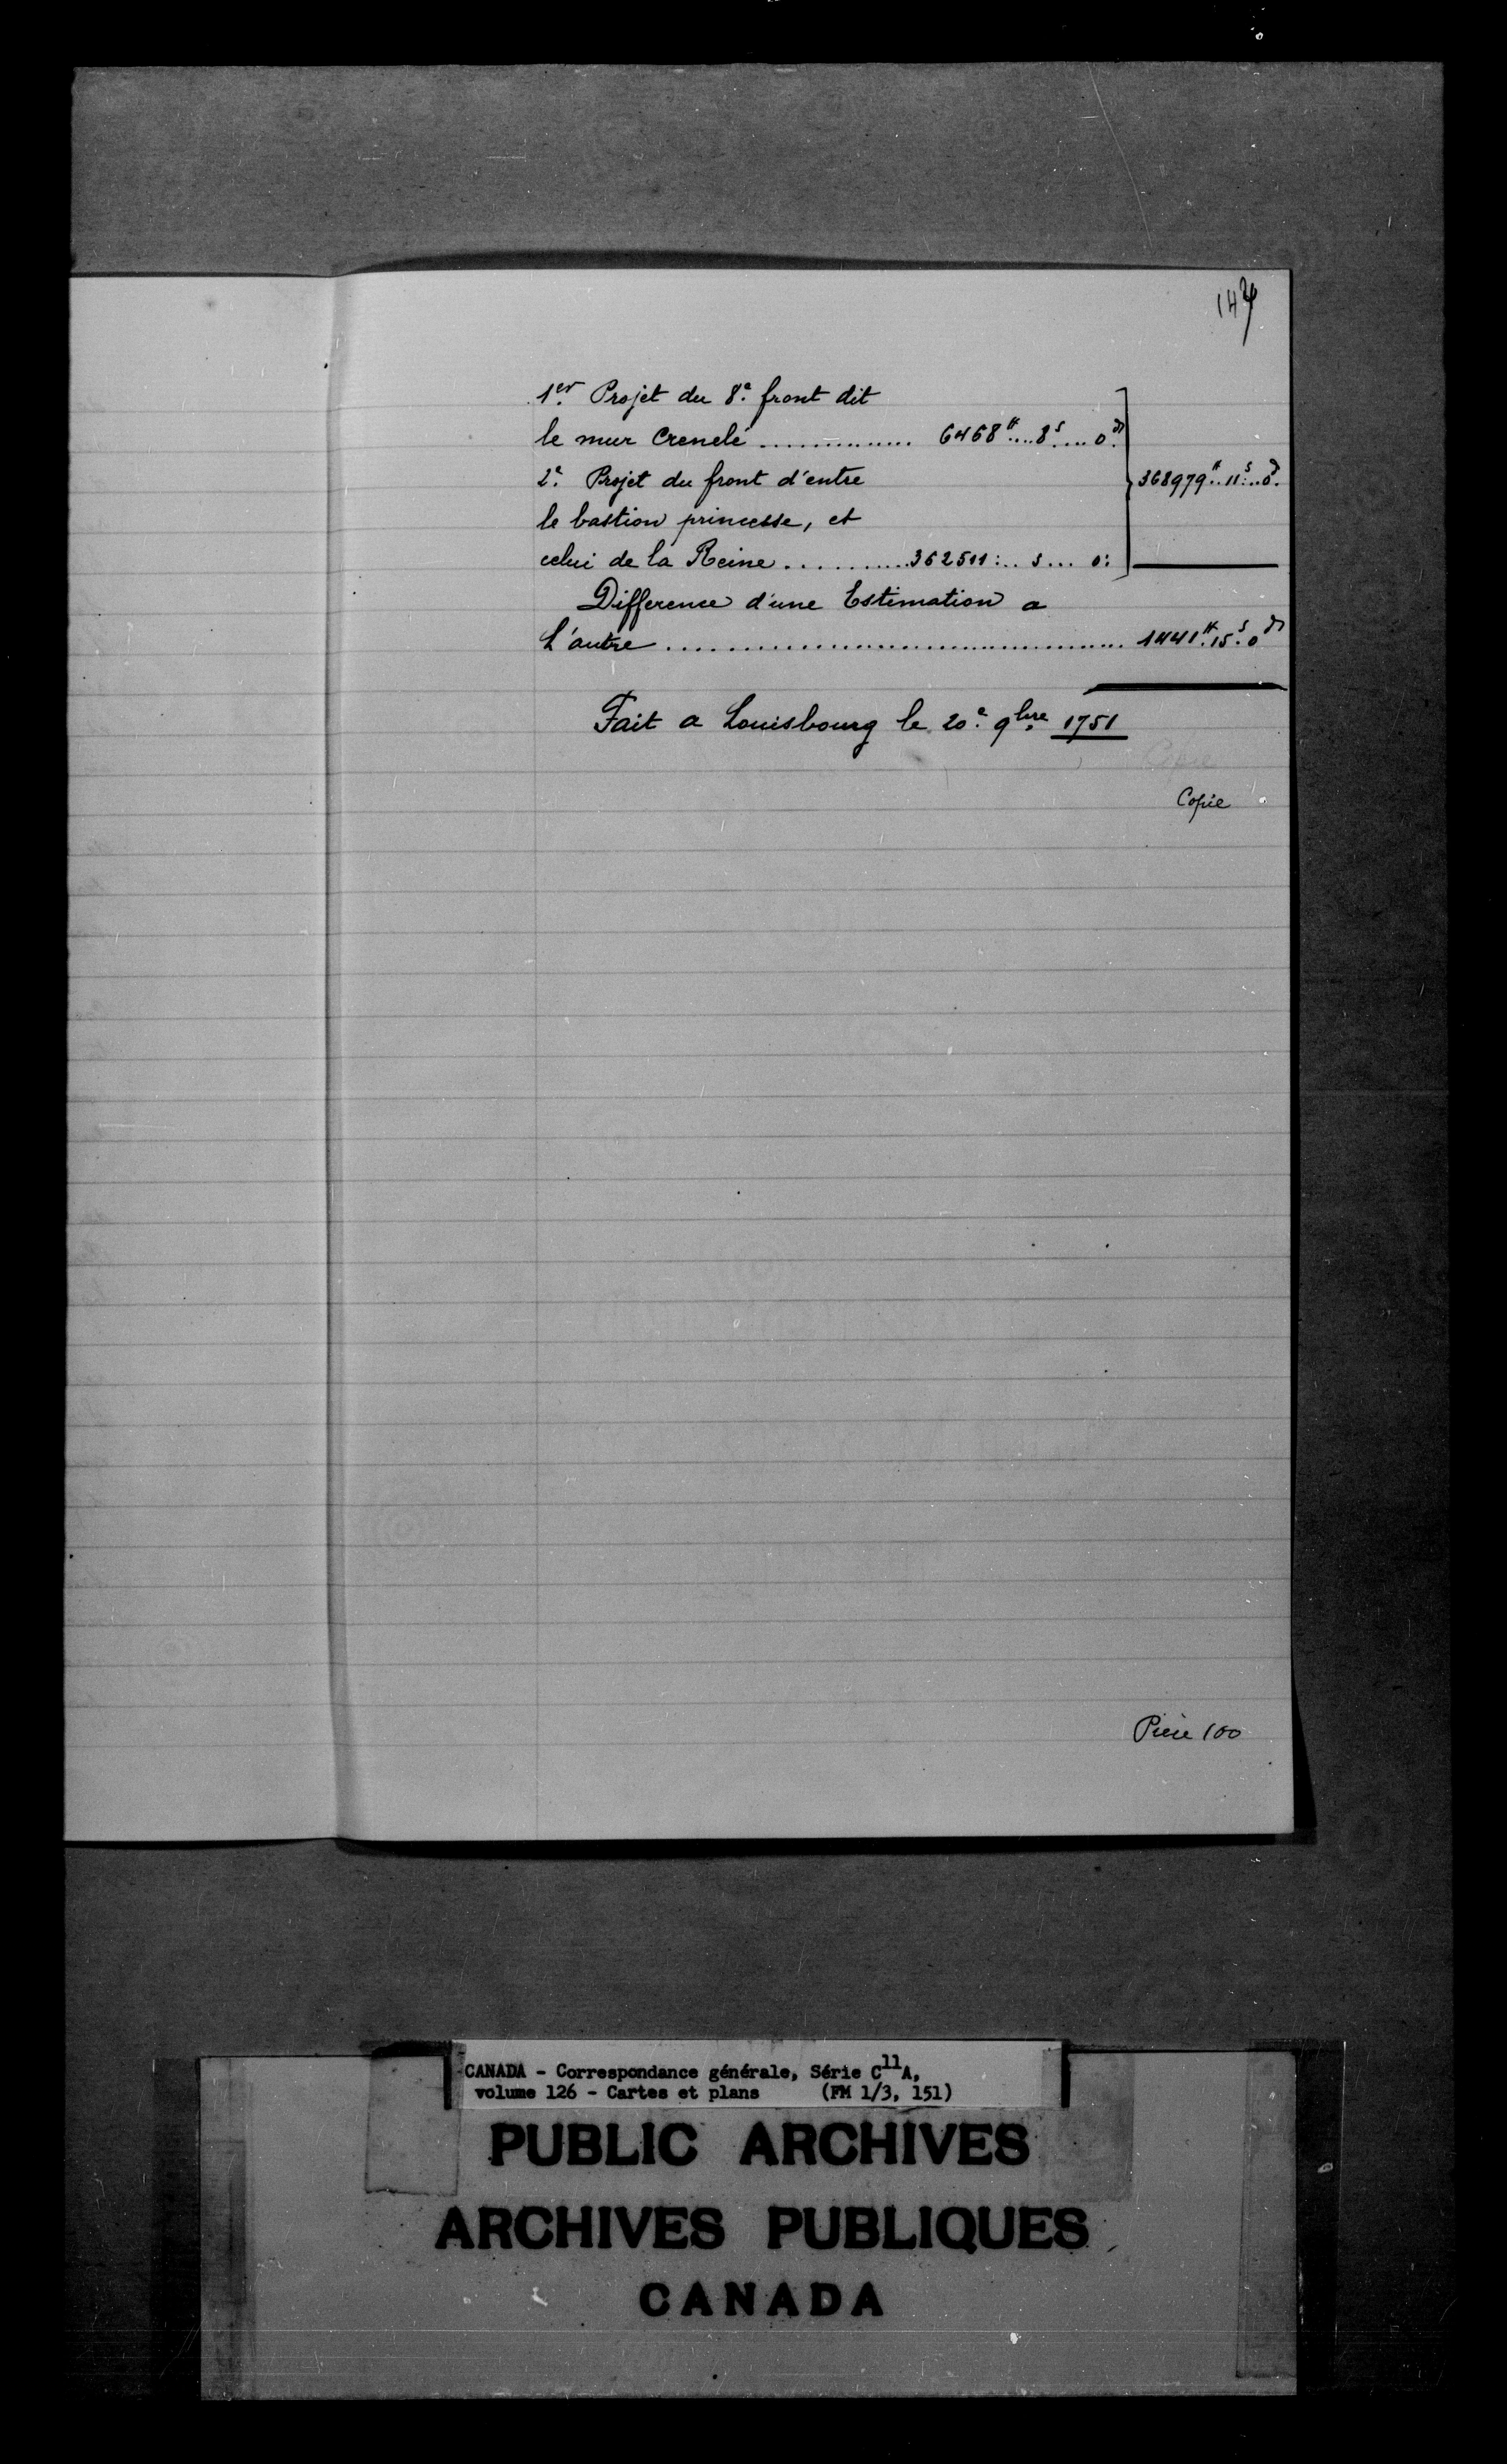 1er Projet du 8e. front dit
le mur Crenelé .............. 6468# .... 8s .... 0d.
2e. Projet du front d'entre
le bastion princesse, et
celui de la Reine ........... 362511: .. 3 ... 0:
368979# .. 11s: .. 0d.
Difference d'une Estimation a
L'autre ........................................ 1441#. 15s. 0d
Fait a Louisbourg le 20e. 9bre 1751
Copie
Copie
Pièce 100
CANADA - Correspondance générale, Série C11A,
volume 126 - Cartes et plans (FM 1/3, 151)
PUBLIC ARCHIVES
ARCHIVES PUBLIQUES
CANADA